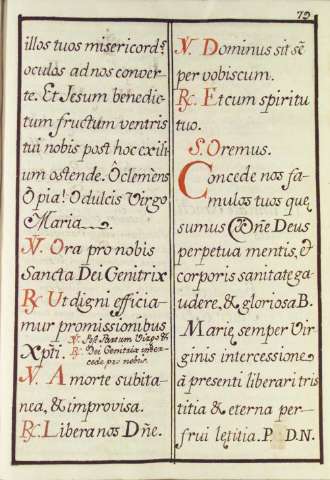 79
illos tuos misericordẽ
oculos ad nos conver
te. Et Jesum benedic
tum fructum ventris
tui nobis post hoc exili
um ostende. Ò clemẽs
Ò pia! O dulcis Virgo
Maria
℣. Ora pro nobis
Sancta Dei Genitrix
℟. Ut digni efficia
mur promissionibus
Xpti. ℣. Post Partum Virgo &c
℟. Dei Genitrix inter
cede pro nobis.
℣. A morte subita
nea, & improvisa.
℟. Libera nos Dñe.
℣. Dominus sit sẽ
per vobiscum.
℟. Et cum spiritu
tuo.
S. Oremus.
Concede nos fa
mulos tuos quę
sumus Dñe Deus
perpetua mentis, &
corporis sanitate ga
udere, & gloriosa B.
Marię semper Vir
ginis intercessione
à presenti liberari tris
titia & eterna per
frui lętitia. P. D. N.